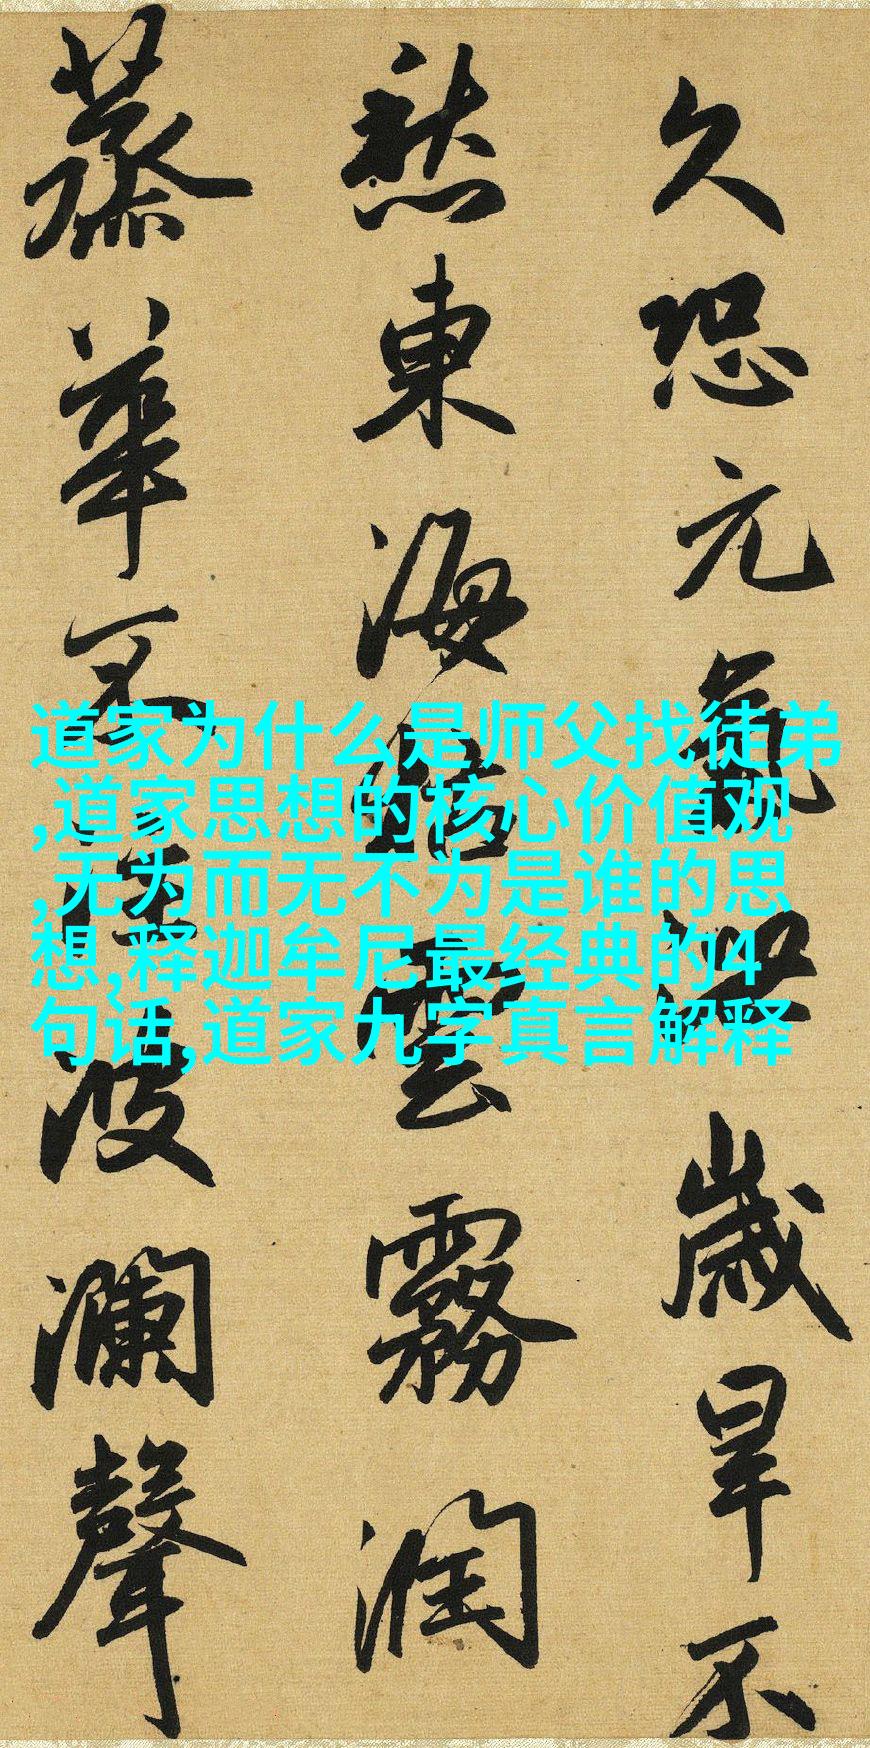 久恐元氣泄歲旱不
愁東海枯雲霧潤
蒸華不注波瀾聲
道家为什么是师父找徒弟
,道家思想的核心价值观
,无为而无不为是谁的思
想,释迦牟尼最经典的4
句话,道家九字真言解释